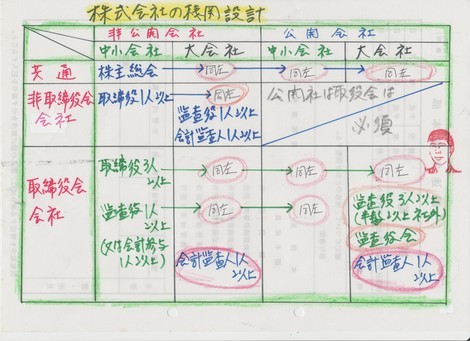 株式会社の機関設計
非公開会社 公開会社
中小会社 大会社 中小会社 大会社
共通 株主総会 同左 同左 同左
非取締役会会社 取締役1人以上 同左 公開社は取役会は
監査役1人以上 必須
会計監査人1人以上
取締役会
会社
取締役3人
以上 同左 同左 同左
監査役1人
以上 同左 同左 監査役3人以上
(半数以上社外)
(又は会計参与
1人以上) 監査役会
会計監査人1人
以上 会計監査人1人
以上